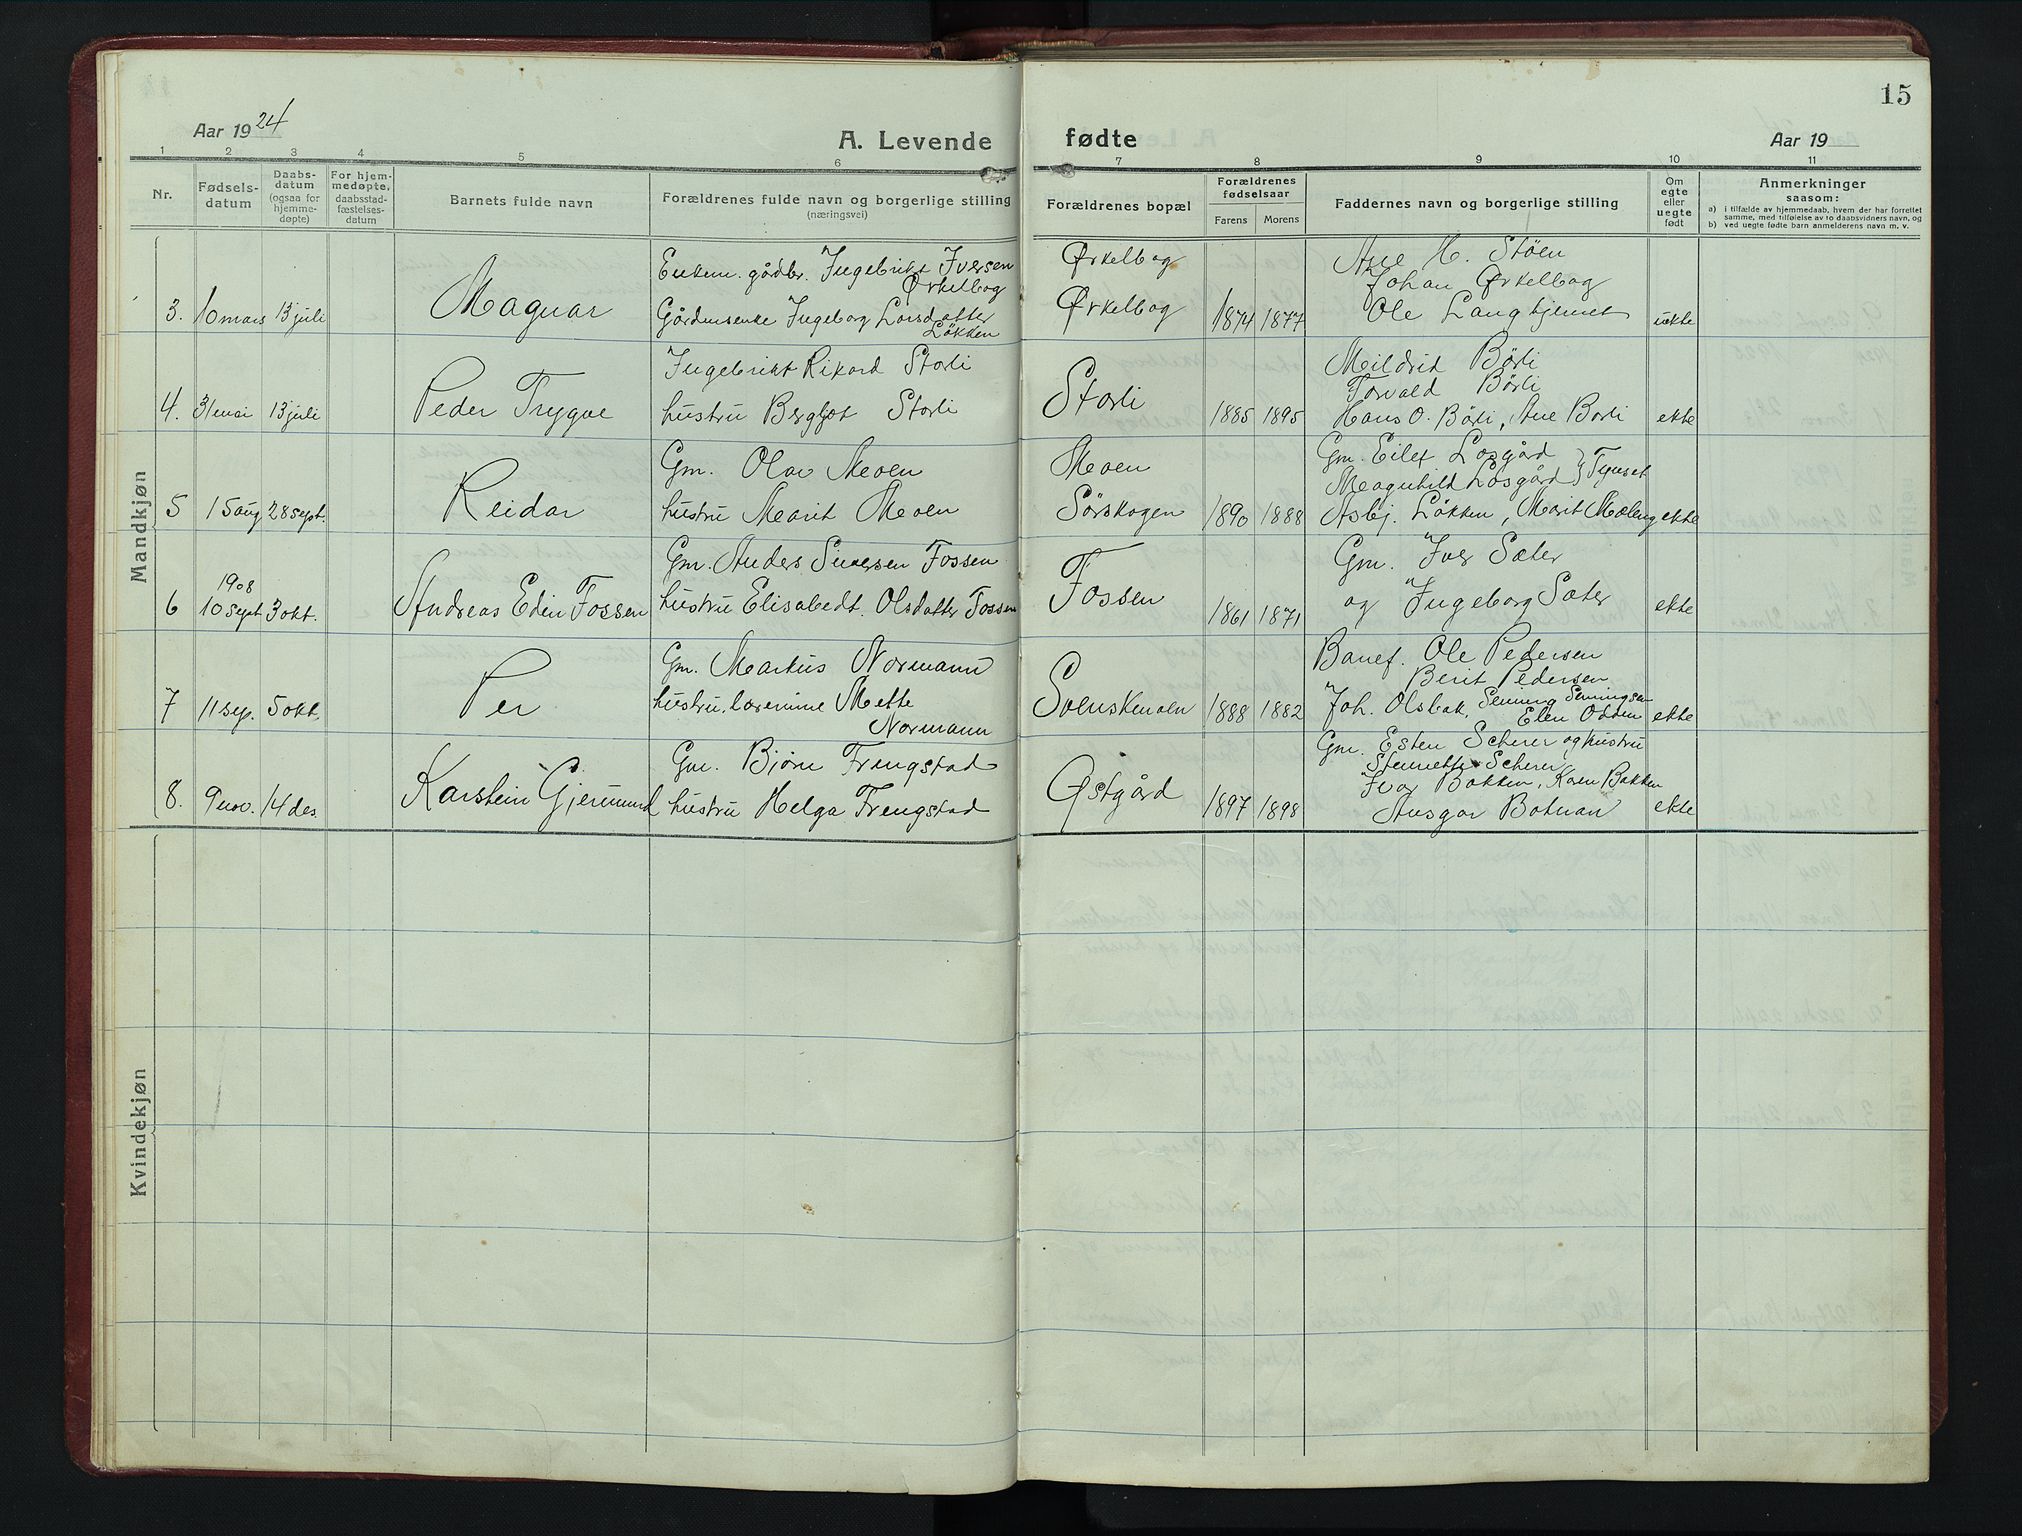 15
Aar 1924
A. Levende fødte
Aar 19
1 2 3 4 5 6 7 8 9 10 11
Nr.
Fødsels-
datum
Daabs-
datum
(ogsaa for
hjemme-
døpte)
For hjem-
medøpte,
daabsstad-
fæstelses-
datum
Barnets fulde navn
Forældrenes fulde navn og borgerlige stilling
(næringsvei)
Forældrenes bopæl
Forældrenes
fødselsaar
Farens Morens
Faddernes navn og borgerlige stilling
Om
egte
eller
uegte
født
Anmerkninger
saasom:
a) i tilfælde av hjemmedaab, hvem der har forrettet
samme, med tilføielse av to daabsvidners navn, og
b) ved uegte fødte barn anmelderens navn m. v.
Mandkjøn
3. 10 mars 13 juli
Magnar
Enkem. gårdbr. Ingebrikt Iversen
Ørkelbog
Gårdmensenke Ingeborg Larsdatter
Løkken
Ørkelbog
Ørkelbog
1874 1877
Ane H. Støen
Johan Ørkelbog
Ole Langhjemet
uekte
4. 31 mai 13 juli
Peder Trygve
Ingebrikt Rikard Storli
hustru Bergljot Storli
Storli
1885 1895
Mildrid Børli
Torvald Børli
Hans O. Børli, Ane Borli
ekte
5 15 aug 28 sept.
Reidar
Gm. Olav Moen
hustru Marit Moen
Moen
Sørskogen
1890 1888
Gm. Eilef Losgård
Magnhild Losgård } Tynset
Asbj. Løkken, Marit Mæleng
ekte
6
1908
10 sept 3 okt.
Andreas Edin Fossen
Gm. Anders Simersen Fossen
hustru Elisabedt Olsdatter Fossen
Fossen
1861 1871
Gm. Iver Sæter
og Ingeborg Sæter
ekte
7 11 sep. 5 okt.
Per
Gm. Markus Normann
hustru, lærerinne Mette
Normann
Svenskmoen
1888 1882
Banef. Ole Pedersen
Berit Pedersen
Joh. Olsbak, Seming Semingsen
Elen Odden
ekte
8. 9 nov. 14 des.
Karstein Gjermund
Gm. Bjørn Frengstad
hustru Helga Frengstad
Østgård
1897 1898
Gm. Esten Scherer og hustru
Stenette Scherer
Ivar Bakken, Karen Bakken
Ansgar Botnan
ekte
Kvindekjøn